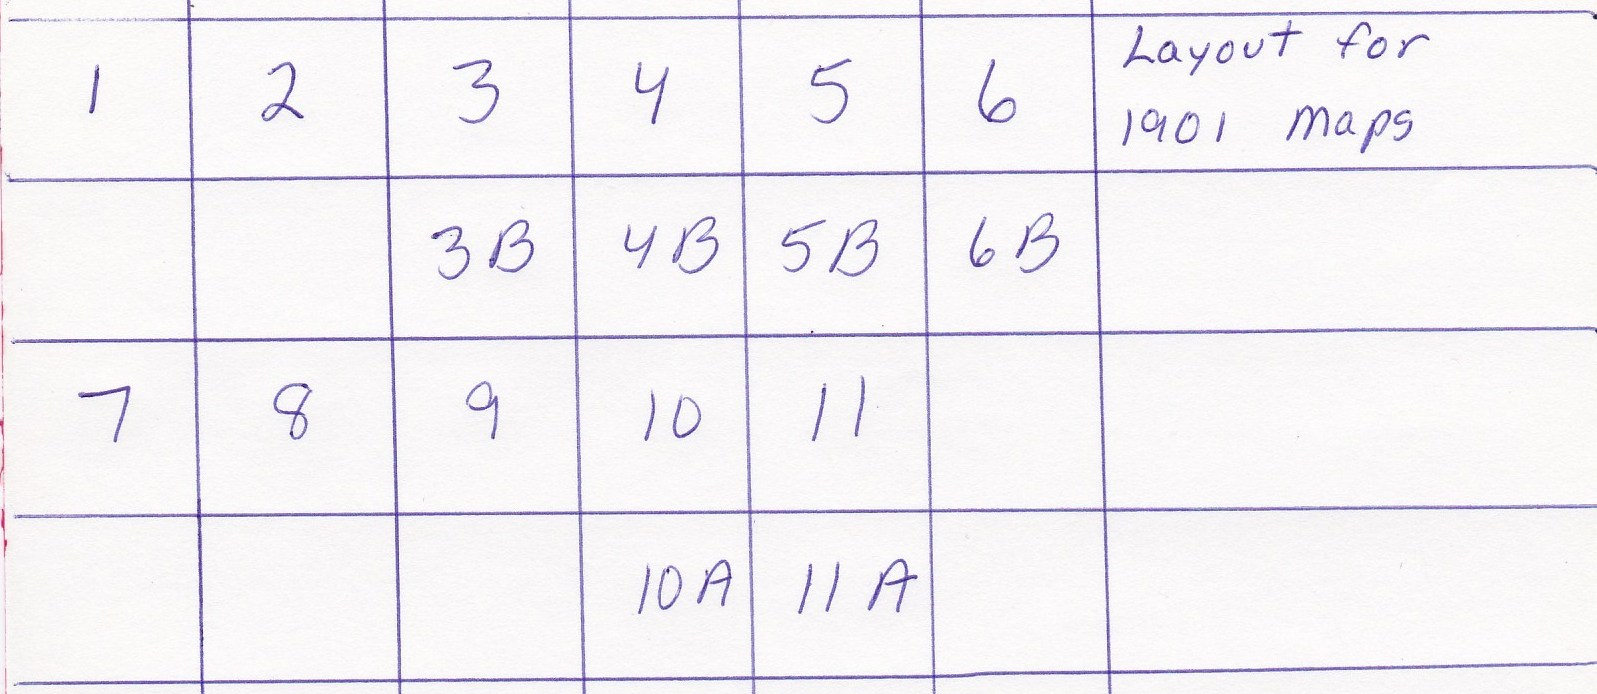 1 2 3 4 5 6 Layout for
1901 Maps
3B 4B 5B 6B
7 8 9 10 11
10A 11A